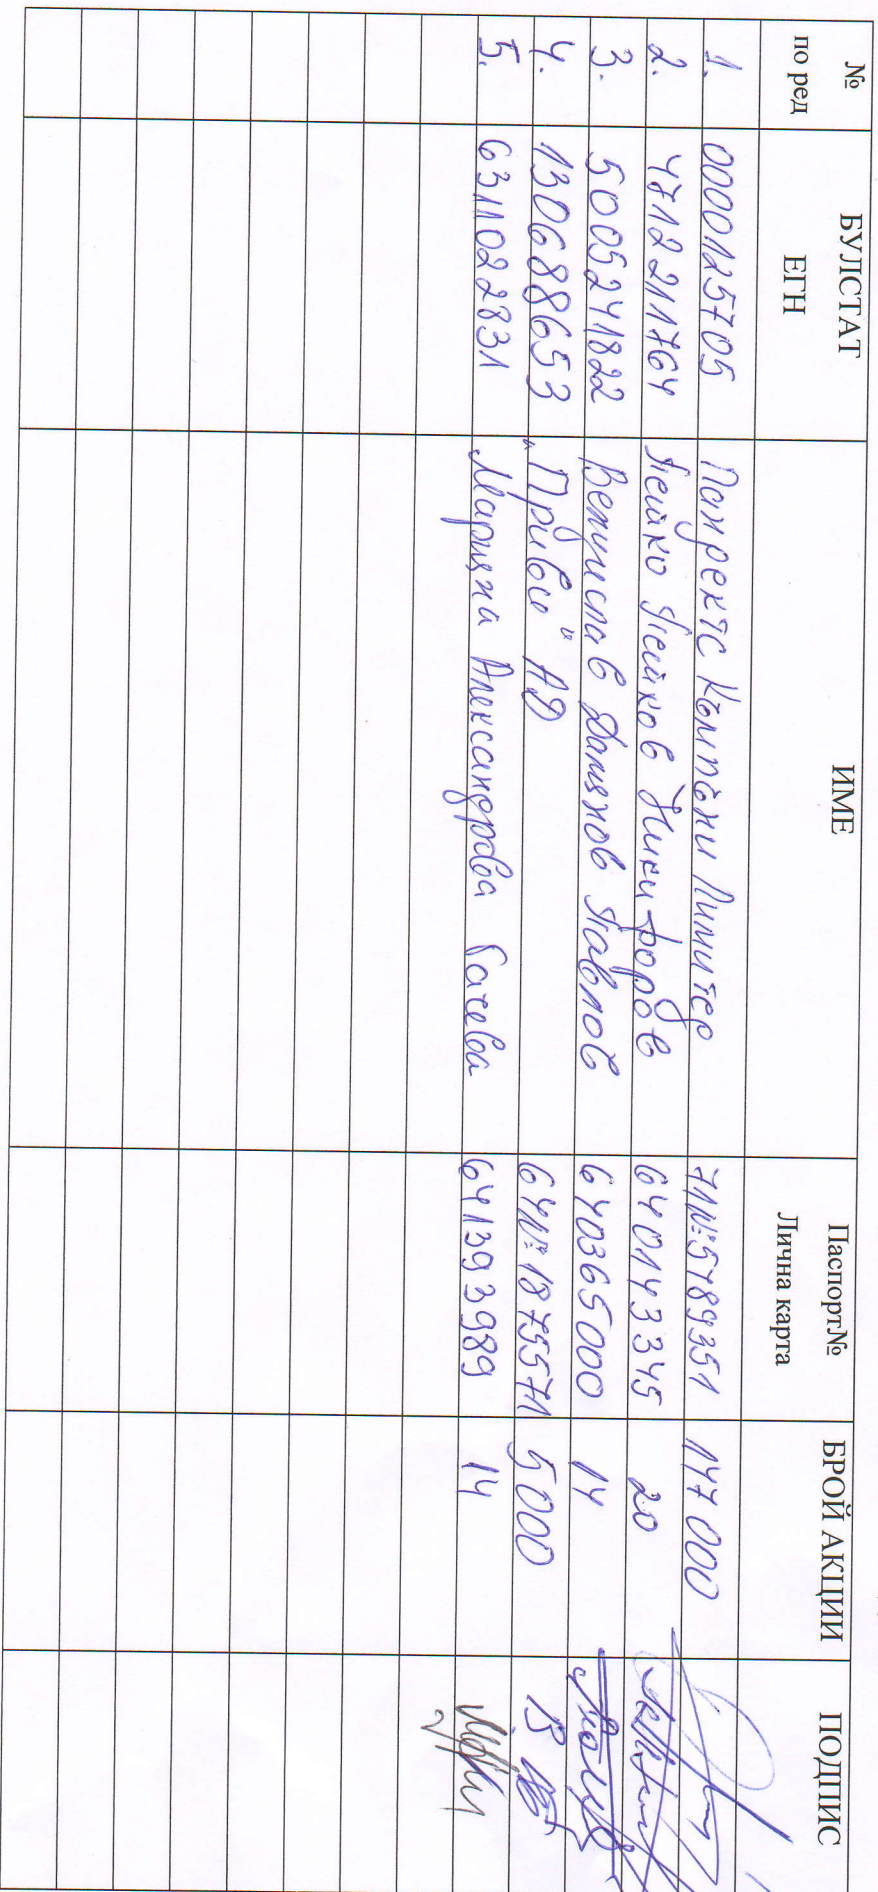 № по ред БУЛСТАТ ЕГН ИМЕ Паспорт№ Лична карта БРОЙ АКЦИИ ПОДПИС
1. 0000125705 Лимитед 71№:5789351 147 000
2. 4712211764 Пейко Пейков Никифоров 640143345 20
3. 5005241822 Венцислав Дамянов Павлов 640365000 14
4. 130688653 „Прибой" АД 64№:1875571 5000
5. 6311022831 Марияна Александрова Бачева 641393989 14